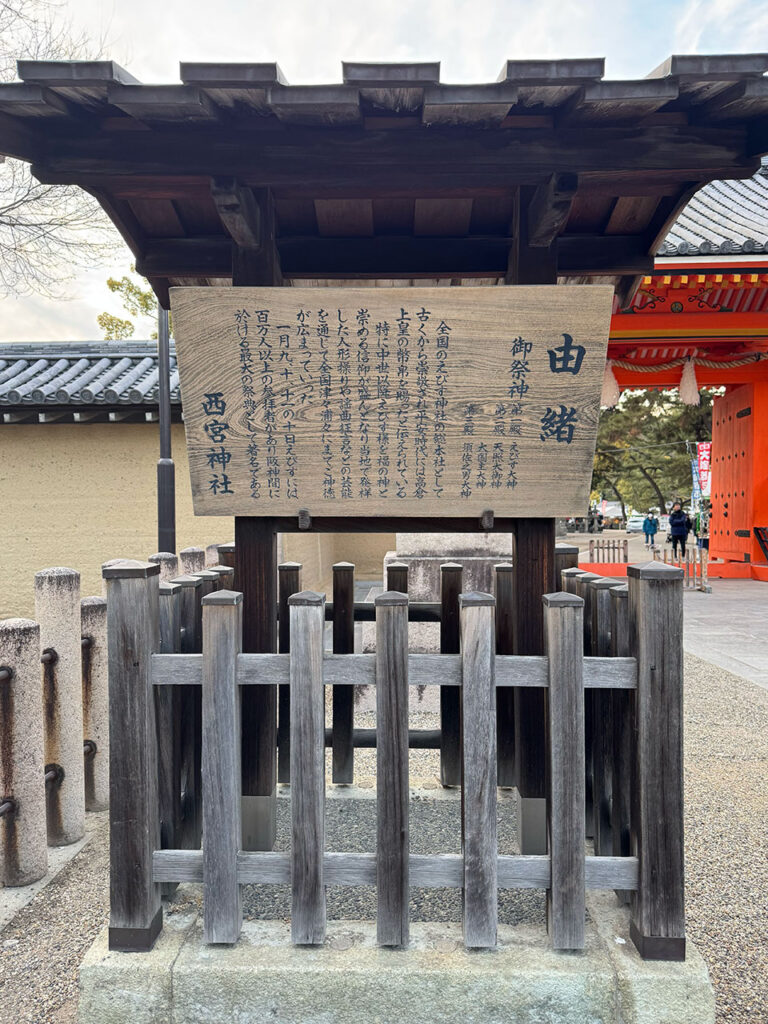 由緒
御祭神 第一殿 えびす大神
第二殿 天照大御神
大国主大神
第三殿 須佐之男大神
全国のえびす神社の総本社として
古くから崇敬され平安時代には高倉
上皇の幣帛を賜ったと伝えられている
特に中世以降えびす様を福の神と
崇める信仰が盛んとなり当地で発祥
した人形操りや謡曲狂言などの芸能
を通じて全国津々浦々にまでご神徳
が広まっていった
一月九 十 十一の十日えびすには
百万人以上の参拝者があり阪神間に
於ける最大の祭典として著名である
西宮神社